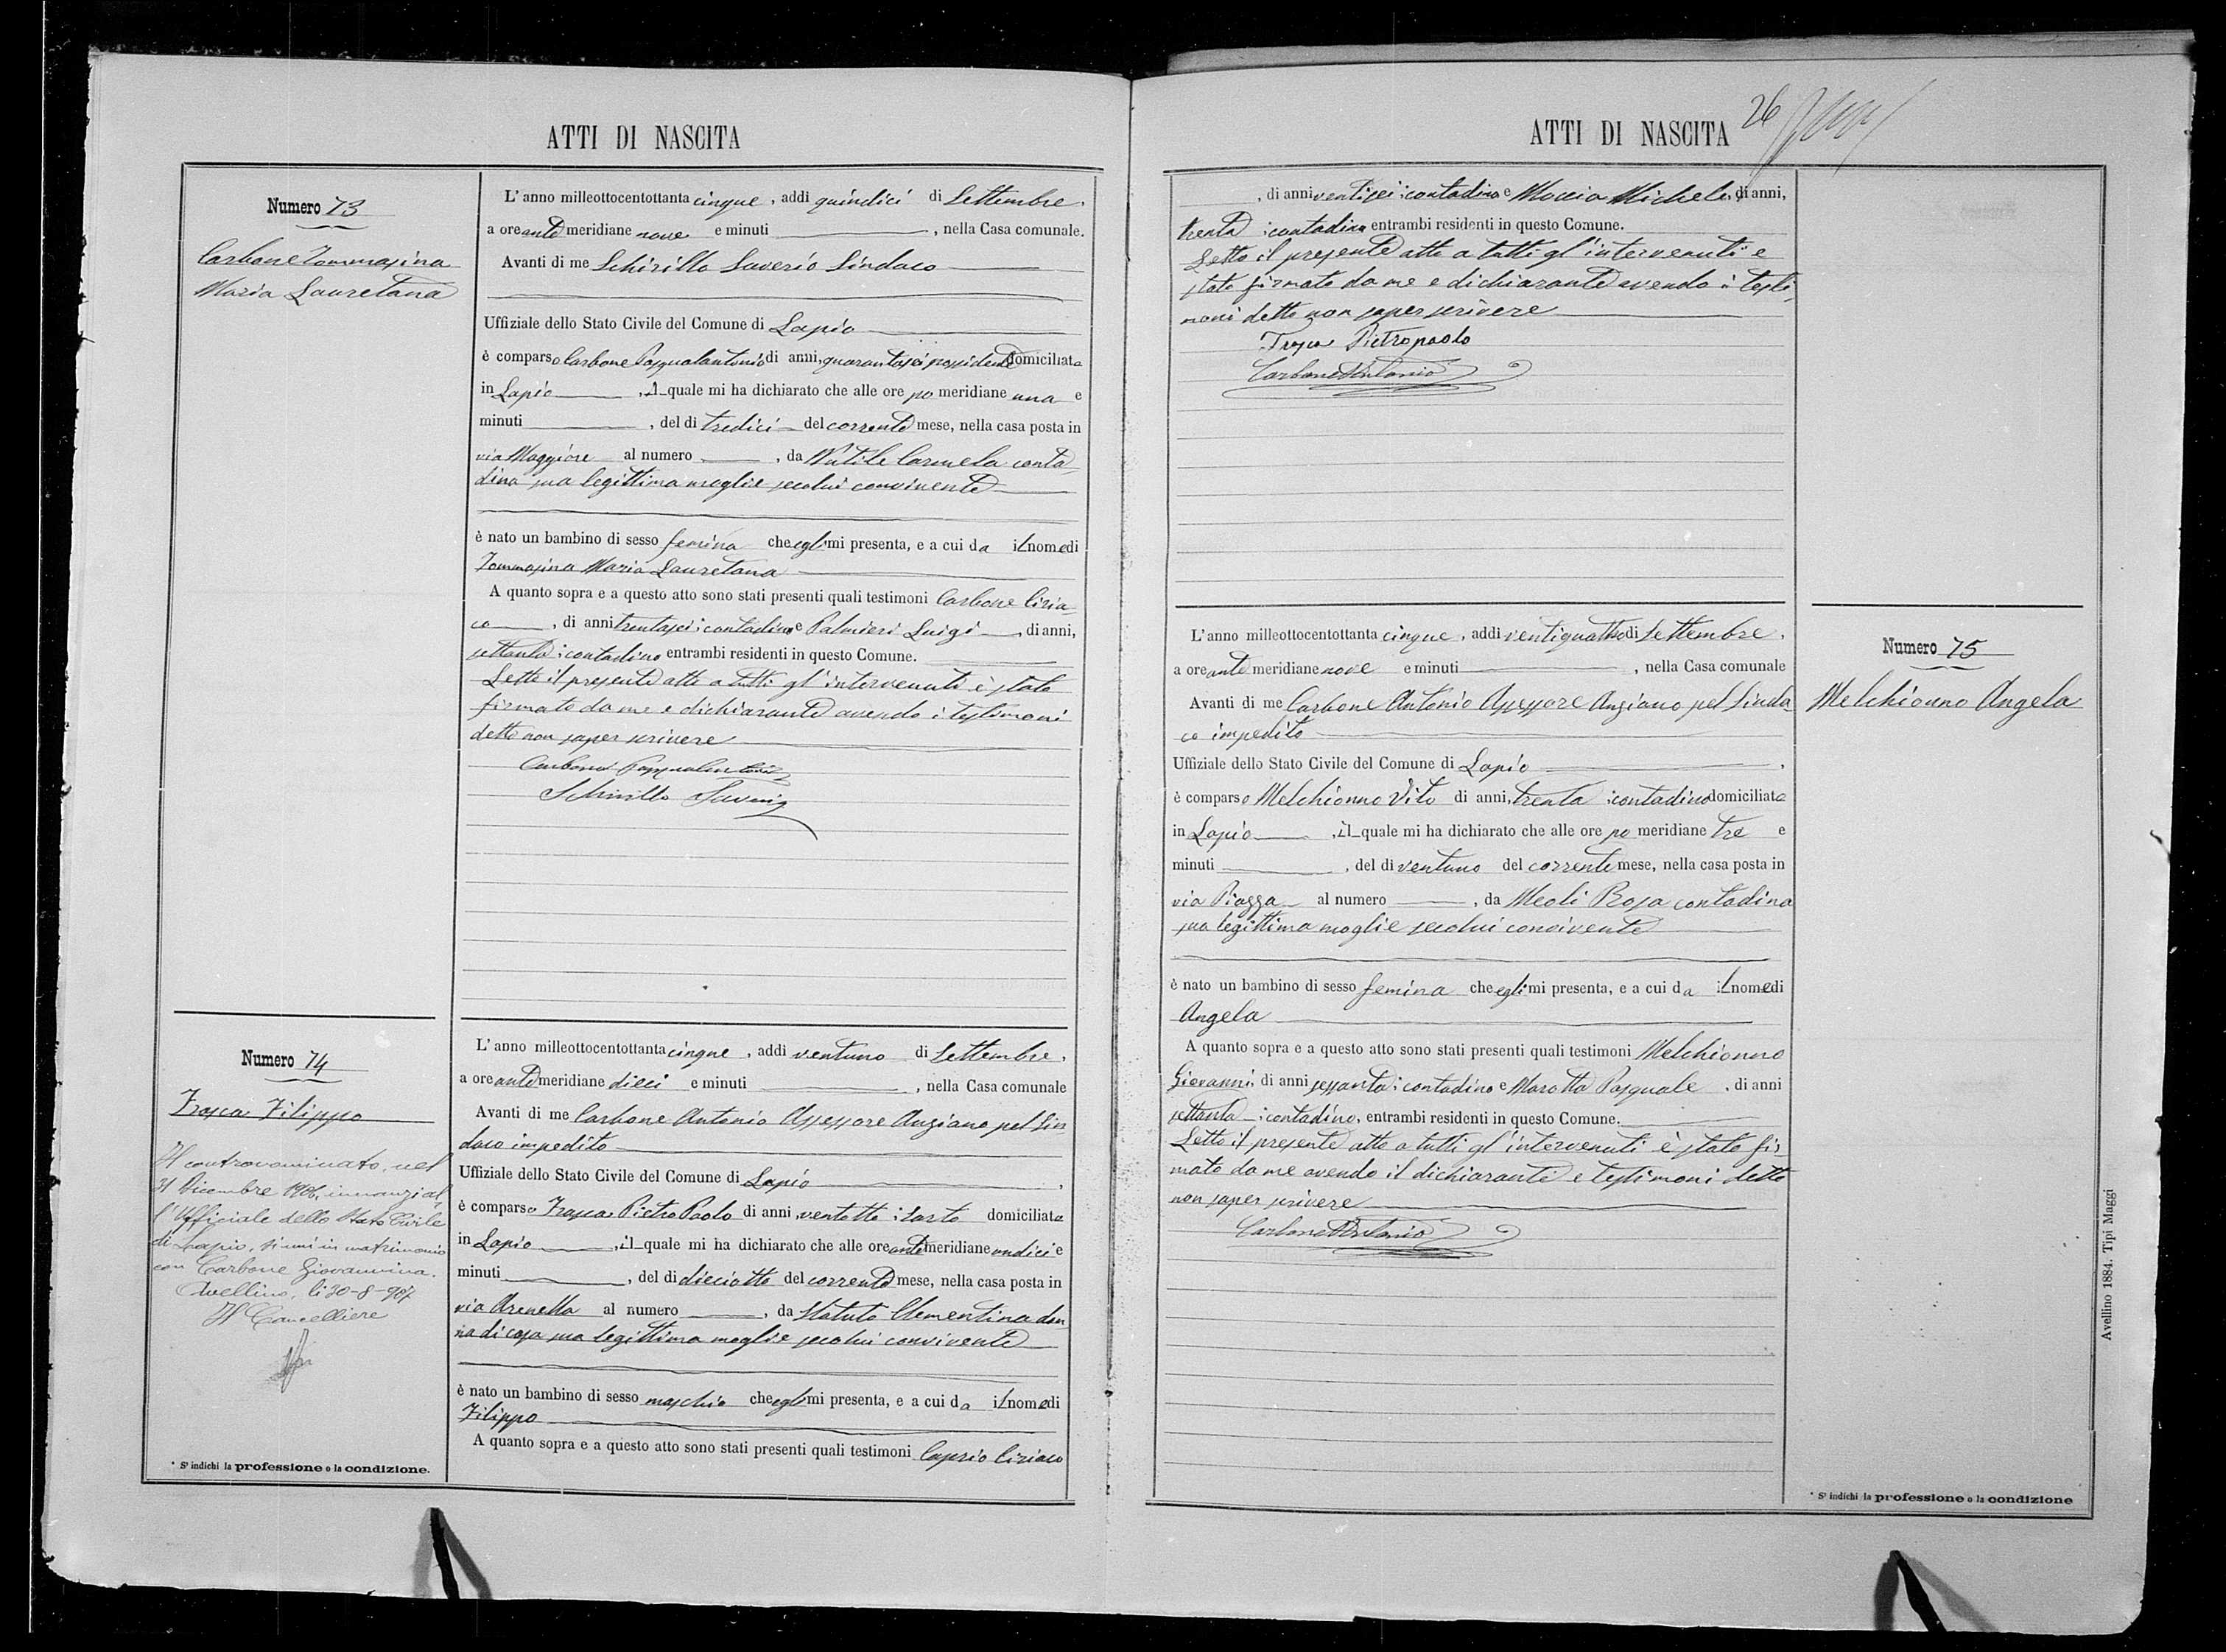 ATTI DI NASCITA
Numero 73
Carbone Tommasina
Maria Lauretana
L'anno milleottocentottanta cinque, addi quindici di Settembre,
a ore ante meridiane nove e minuti , nella Casa comunale.
Avanti di me Schirillo Saverio Sindaco
Uffiziale dello Stato Civile del Comune di Lapio
è comparso Carbone Pasqualantonio di anni, quarantasei possidente domiciliato
in Lapio , il quale mi ha dichiarato che alle ore po meridiane una e
minuti , del dì tredici del corrente mese, nella casa posta in
via Maggiore al numero , da Nutile Carmela conta
dina sua legittima moglie secolui convivente
è nato un bambino di sesso femina che egli mi presenta, e a cui da il nome di
Tommasina Maria Lauretana
A quanto sopra e a questo atto sono stati presenti quali testimoni Carbone Ciria
co , di anni trentasei : contadino e Palmieri Luigi , di anni,
settanta : contadino entrambi residenti in questo Comune.
Letto il presente atto a tutti gl'intervenuti è stato
firmato da me e dichiarante avendo i testimoni
detto non saper scrivere
Carbone Pasqualantonio
Schirillo Saverio
Numero 74
Frasca Filippo
Il contronominato, nel
31 Dicembre 1906, innanzi al
l'Ufficiale dello Stato Civile
di Lapio, si unì in matrimonio
con Carbone Giovannina.
Avellino, li 30-8-907
Il Cancelliere
L'anno milleottocentottanta cinque, addi ventuno di Settembre,
a ore ante meridiane dieci e minuti , nella Casa comunale
Avanti di me Carbone Antonio Assessore Anziano pel Sin
daco impedito
Uffiziale dello Stato Civile del Comune di Lapio
è comparso Frasca Pietro Paolo di anni, ventotto : sarto domiciliato
in Lapio , il quale mi ha dichiarato che alle ore ante meridiane undici e
minuti , del dì dieciotto del corrente mese, nella casa posta in
via Arenella al numero , da Statuto Clementina don
na di casa sua legittima moglie secolui convivente
è nato un bambino di sesso maschio che egli mi presenta, e a cui da il nome di
Filippo
A quanto sopra e a questo atto sono stati presenti quali testimoni Caprio Ciriaco
* Si indichi la professione o la condizione.
ATTI DI NASCITA
26
, di anni ventisei : contadino e Moccia Michele, di anni,
trenta : contadino entrambi residenti in questo Comune.
Letto il presente atto a tutti gl'intervenuti è
stato firmato da me e dichiarante avendo i testi
moni detto non saper scrivere
Frasca Pietropaolo
Carbone Antonio
Numero 75
Melchionno Angela
L'anno milleottocentottanta cinque, addi ventiquattro di Settembre,
a ore ante meridiane nove e minuti , nella Casa comunale
Avanti di me Carbone Antonio Assessore Anziano pel Sinda
co impedito
Uffiziale dello Stato Civile del Comune di Lapio
è comparso Melchionno Vito di anni, trenta : contadino domiciliato
in Lapio , il quale mi ha dichiarato che alle ore po meridiane tre e
minuti , del dì ventuno del corrente mese, nella casa posta in
via Piazza al numero , da Meoli Rosa contadina
sua legittima moglie secolui convivente
è nato un bambino di sesso femina che egli mi presenta, e a cui da il nome di
Angela
A quanto sopra e a questo atto sono stati presenti quali testimoni Melchionno
Giovanni, di anni sessanta : contadino e Marotta Pasquale , di anni
settanta : contadino, entrambi residenti in questo Comune.
Letto il presente atto a tutti gl'intervenuti è stato fir
mato da me avendo il dichiarante e testimoni detto
non saper scrivere
Carbone Antonio
* Si indichi la professione o la condizione
Avellino 1884. Tipi Maggi